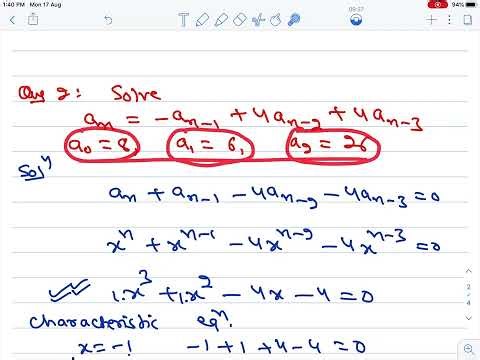 1:40 PM Mon 17 Aug
09:37
94%
Ques 2: Solve
aₙ = -aₙ₋₁ + 4aₙ₋₂ + 4aₙ₋₃
a₀ = 8, a₁ = 6, a₂ = 26
Solⁿ
aₙ + aₙ₋₁ - 4aₙ₋₂ - 4aₙ₋₃ = 0
xⁿ + xⁿ⁻¹ - 4xⁿ⁻² - 4xⁿ⁻³ = 0
1.x³ + 1.x² - 4x - 4 = 0
characteristic eqⁿ.
x = -1 -1 + 1 + 4 - 4 = 0
2
4